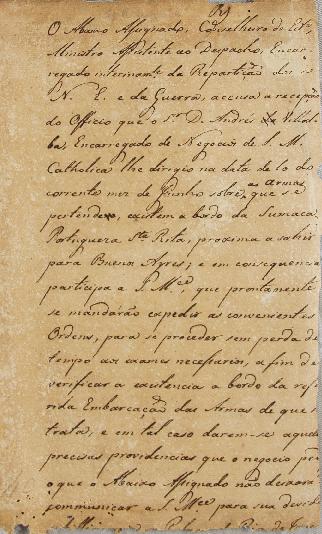 O Abaixo Assignado, Conselheiro de Est.º,
Ministro Assistente ao Despacho, Encar-
regado interinam.te da Repartição dos
N. E. e da Guerra, accusa a recepção
do Officio que o S.r D. André Villalba
ba, Encarregado de Negocios de S. M.
Catholica lhe dirigio na data de 10 do
corrente mez de Junho sobre as Armas, que se
pertende, existem a bordo da Sumaca
Portugueza S.ta Rita, proxima a sahir
para Buenos Ayres; e em consequencia
participa a S. M.ce, que promptamente
se mandarão expedir as convenientes
Ordens, para se proceder sem perda de
tempo aos exames necessarios, a fim de
verificar a existencia a bordo da refe
rida Embarcação das Armas de que s
trata, e em tal caso darem-se aquel
precisas providencias que o negocio
o que o Abaixo Assignado não deixará
communicar a S. M.ce para sua devida